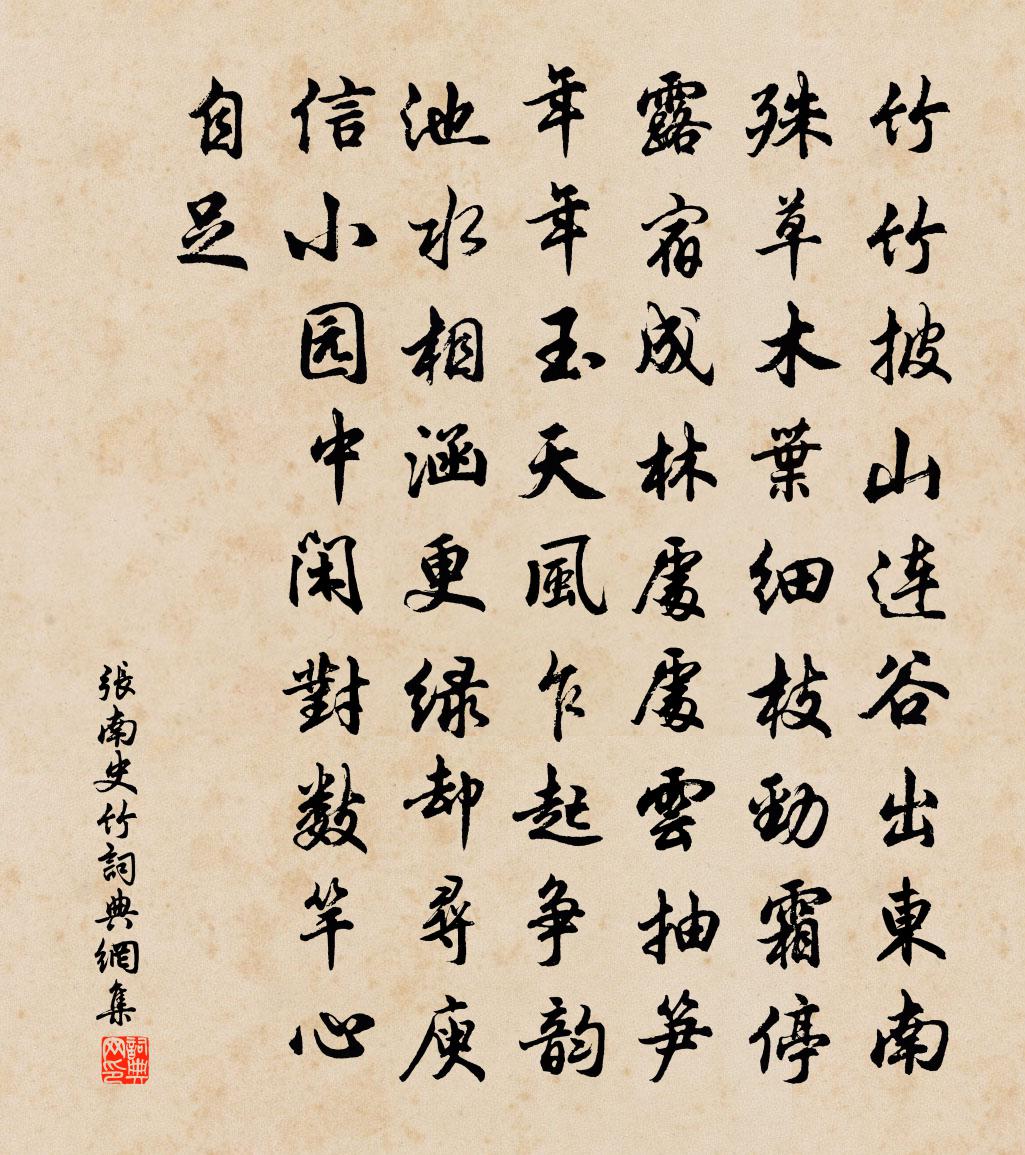 竹竹披山連谷出東南
殊草木葉細枝勁霜停
露宿成林處處雲抽笋
年年玉天風乍起争韵
池水相涵更緑却尋庾
信小园中閑對數竿心
自足
張南史竹詞典網集
詞典网印